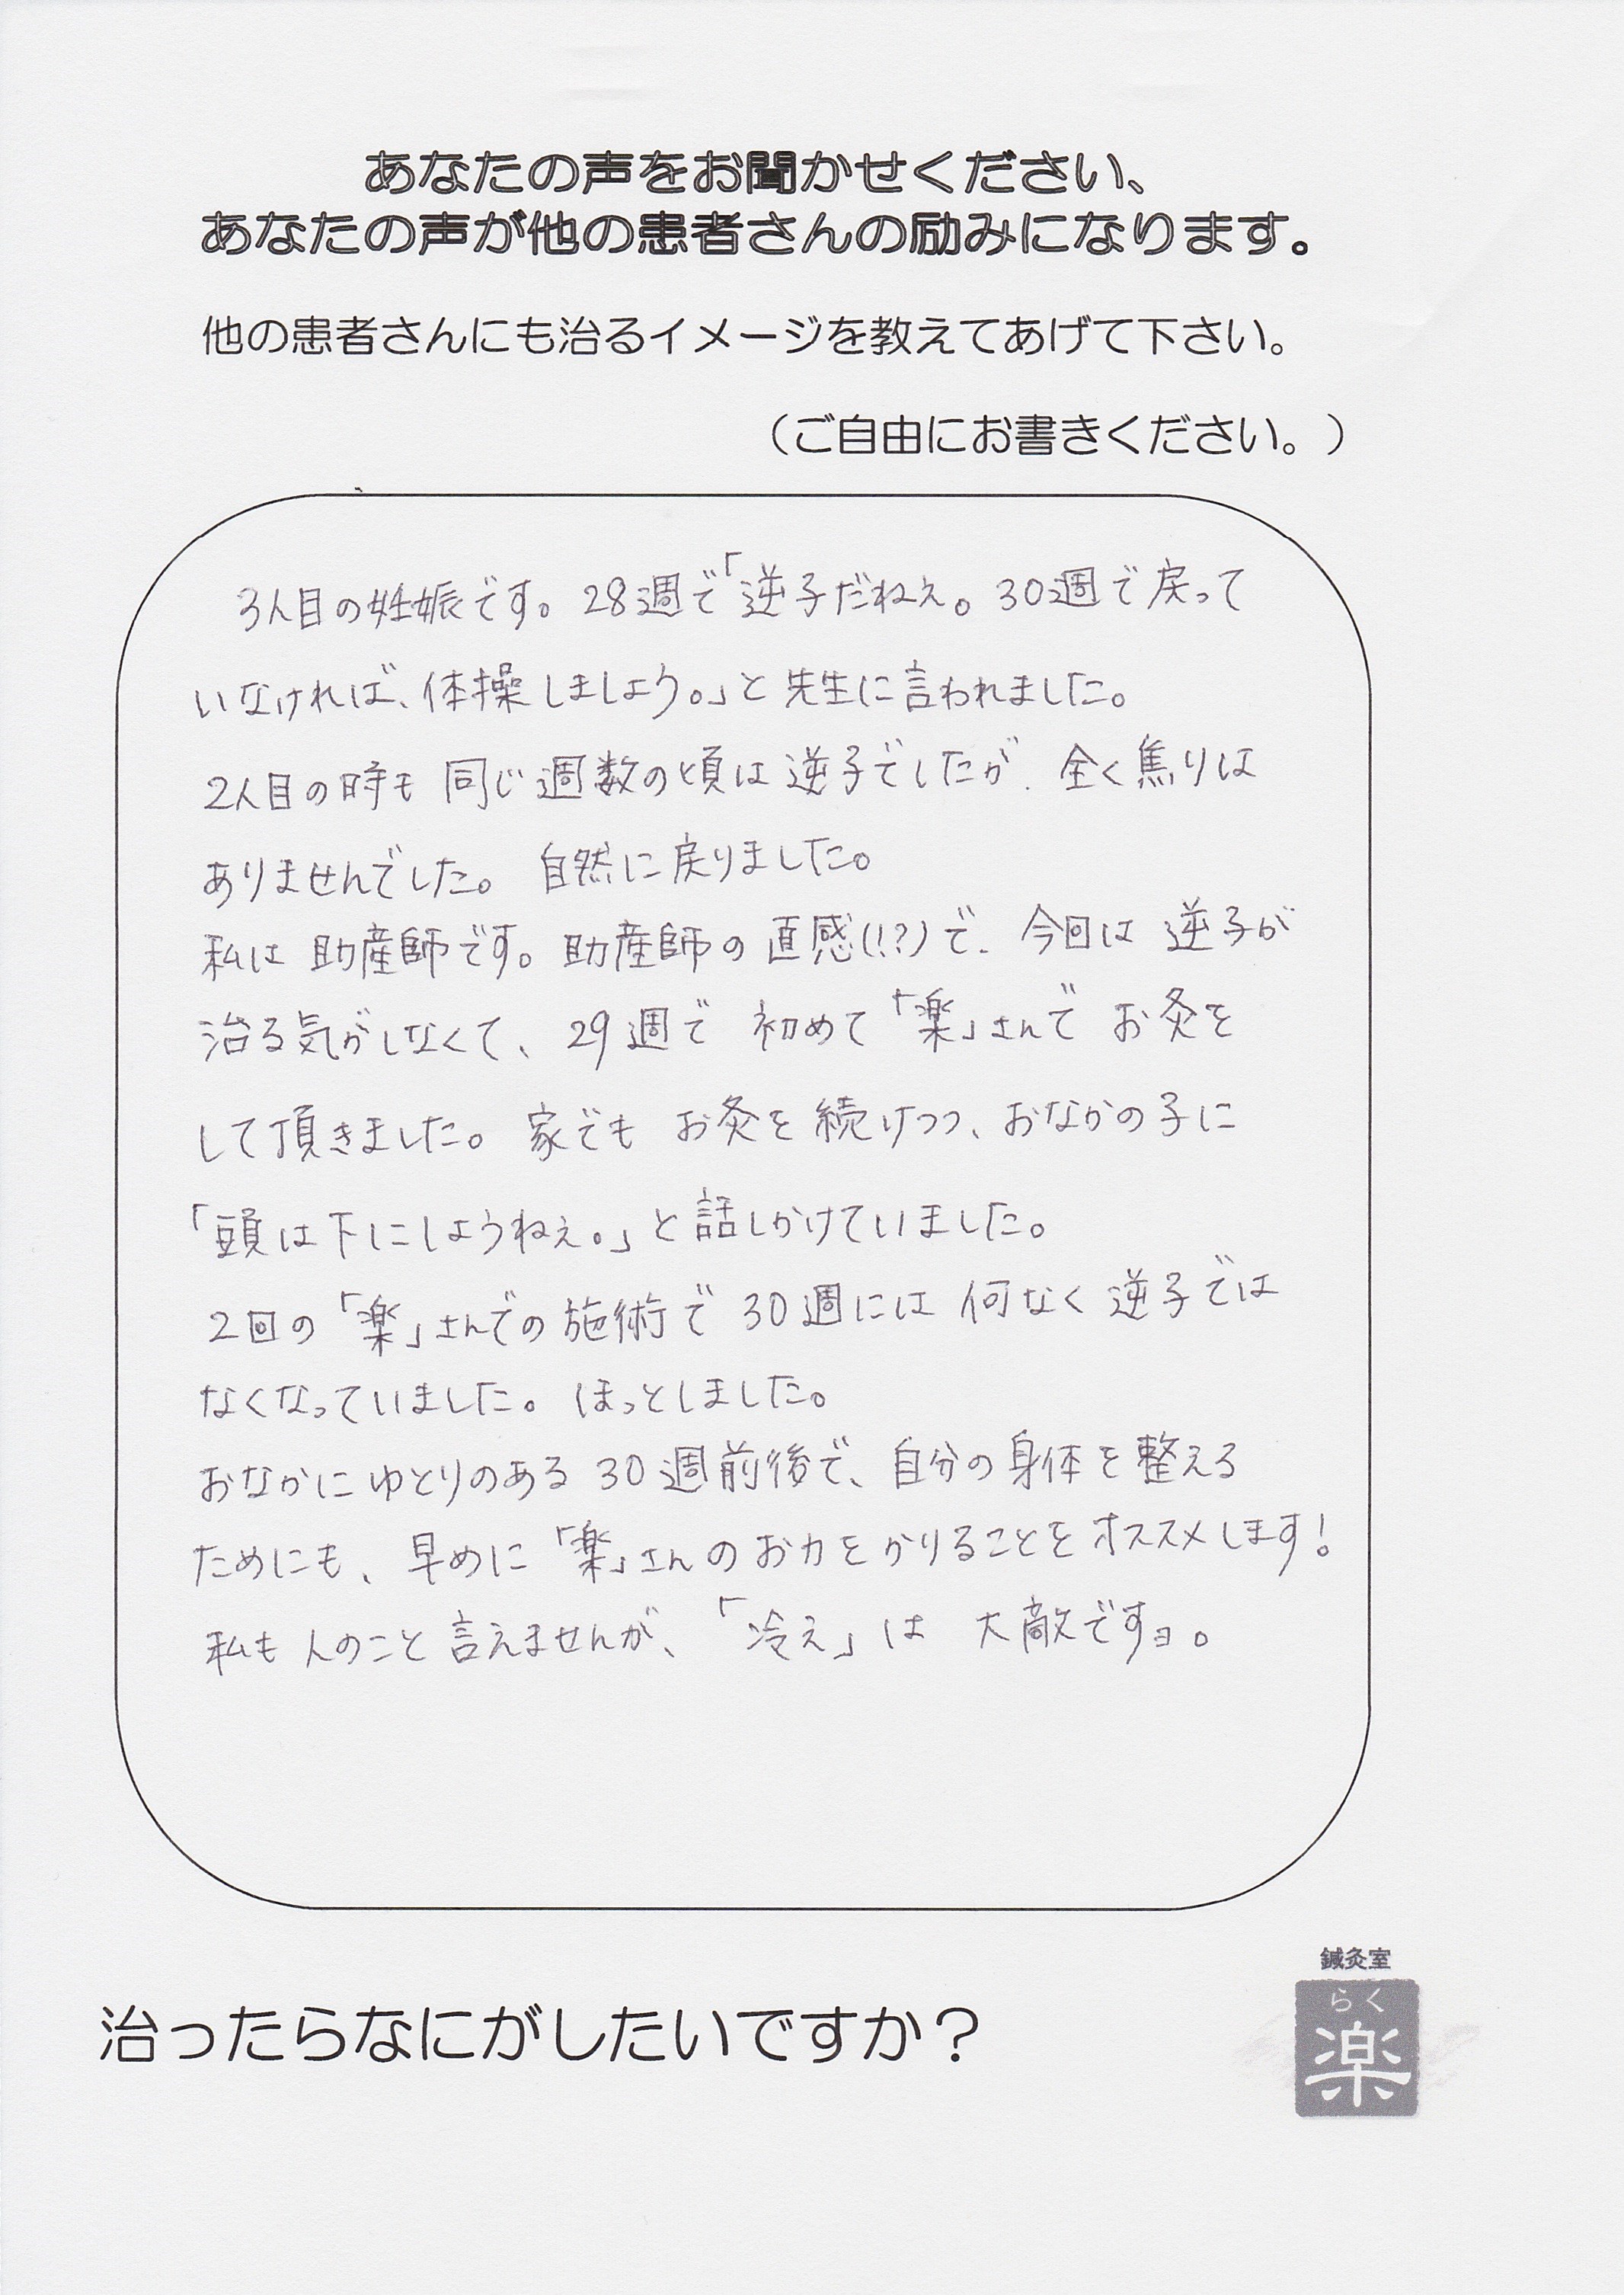 あなたの声をお聞かせください、
あなたの声が他の患者さんの励みになります。
他の患者さんにも治るイメージを教えてあげて下さい。
（ご自由にお書きください。）
3人目の妊娠です。28週で「逆子だねぇ。30週で戻って
いなければ、体操しましょう。」と先生に言われました。
2人目の時も同じ週数の頃は逆子でしたが、全く焦りは
ありませんでした。自然に戻りました。
私は助産師です。助産師の直感(!?)で、今回は逆子が
治る気がしなくて、29週で初めて「楽」さんでお灸を
して頂きました。家でもお灸を続けつつ、おなかの子に
「頭は下にしようねぇ。」と話しかけていました。
2回の「楽」さんでの施術で30週には何なく逆子では
なくなっていました。ほっとしました。
おなかにゆとりのある30週前後で、自分の身体を整える
ためにも、早めに「楽」さんのお力をかりることをオススメします!
私も人のこと言えませんが、「冷え」は大敵ですョ。
治ったらなにがしたいですか？
鍼灸室
らく
楽